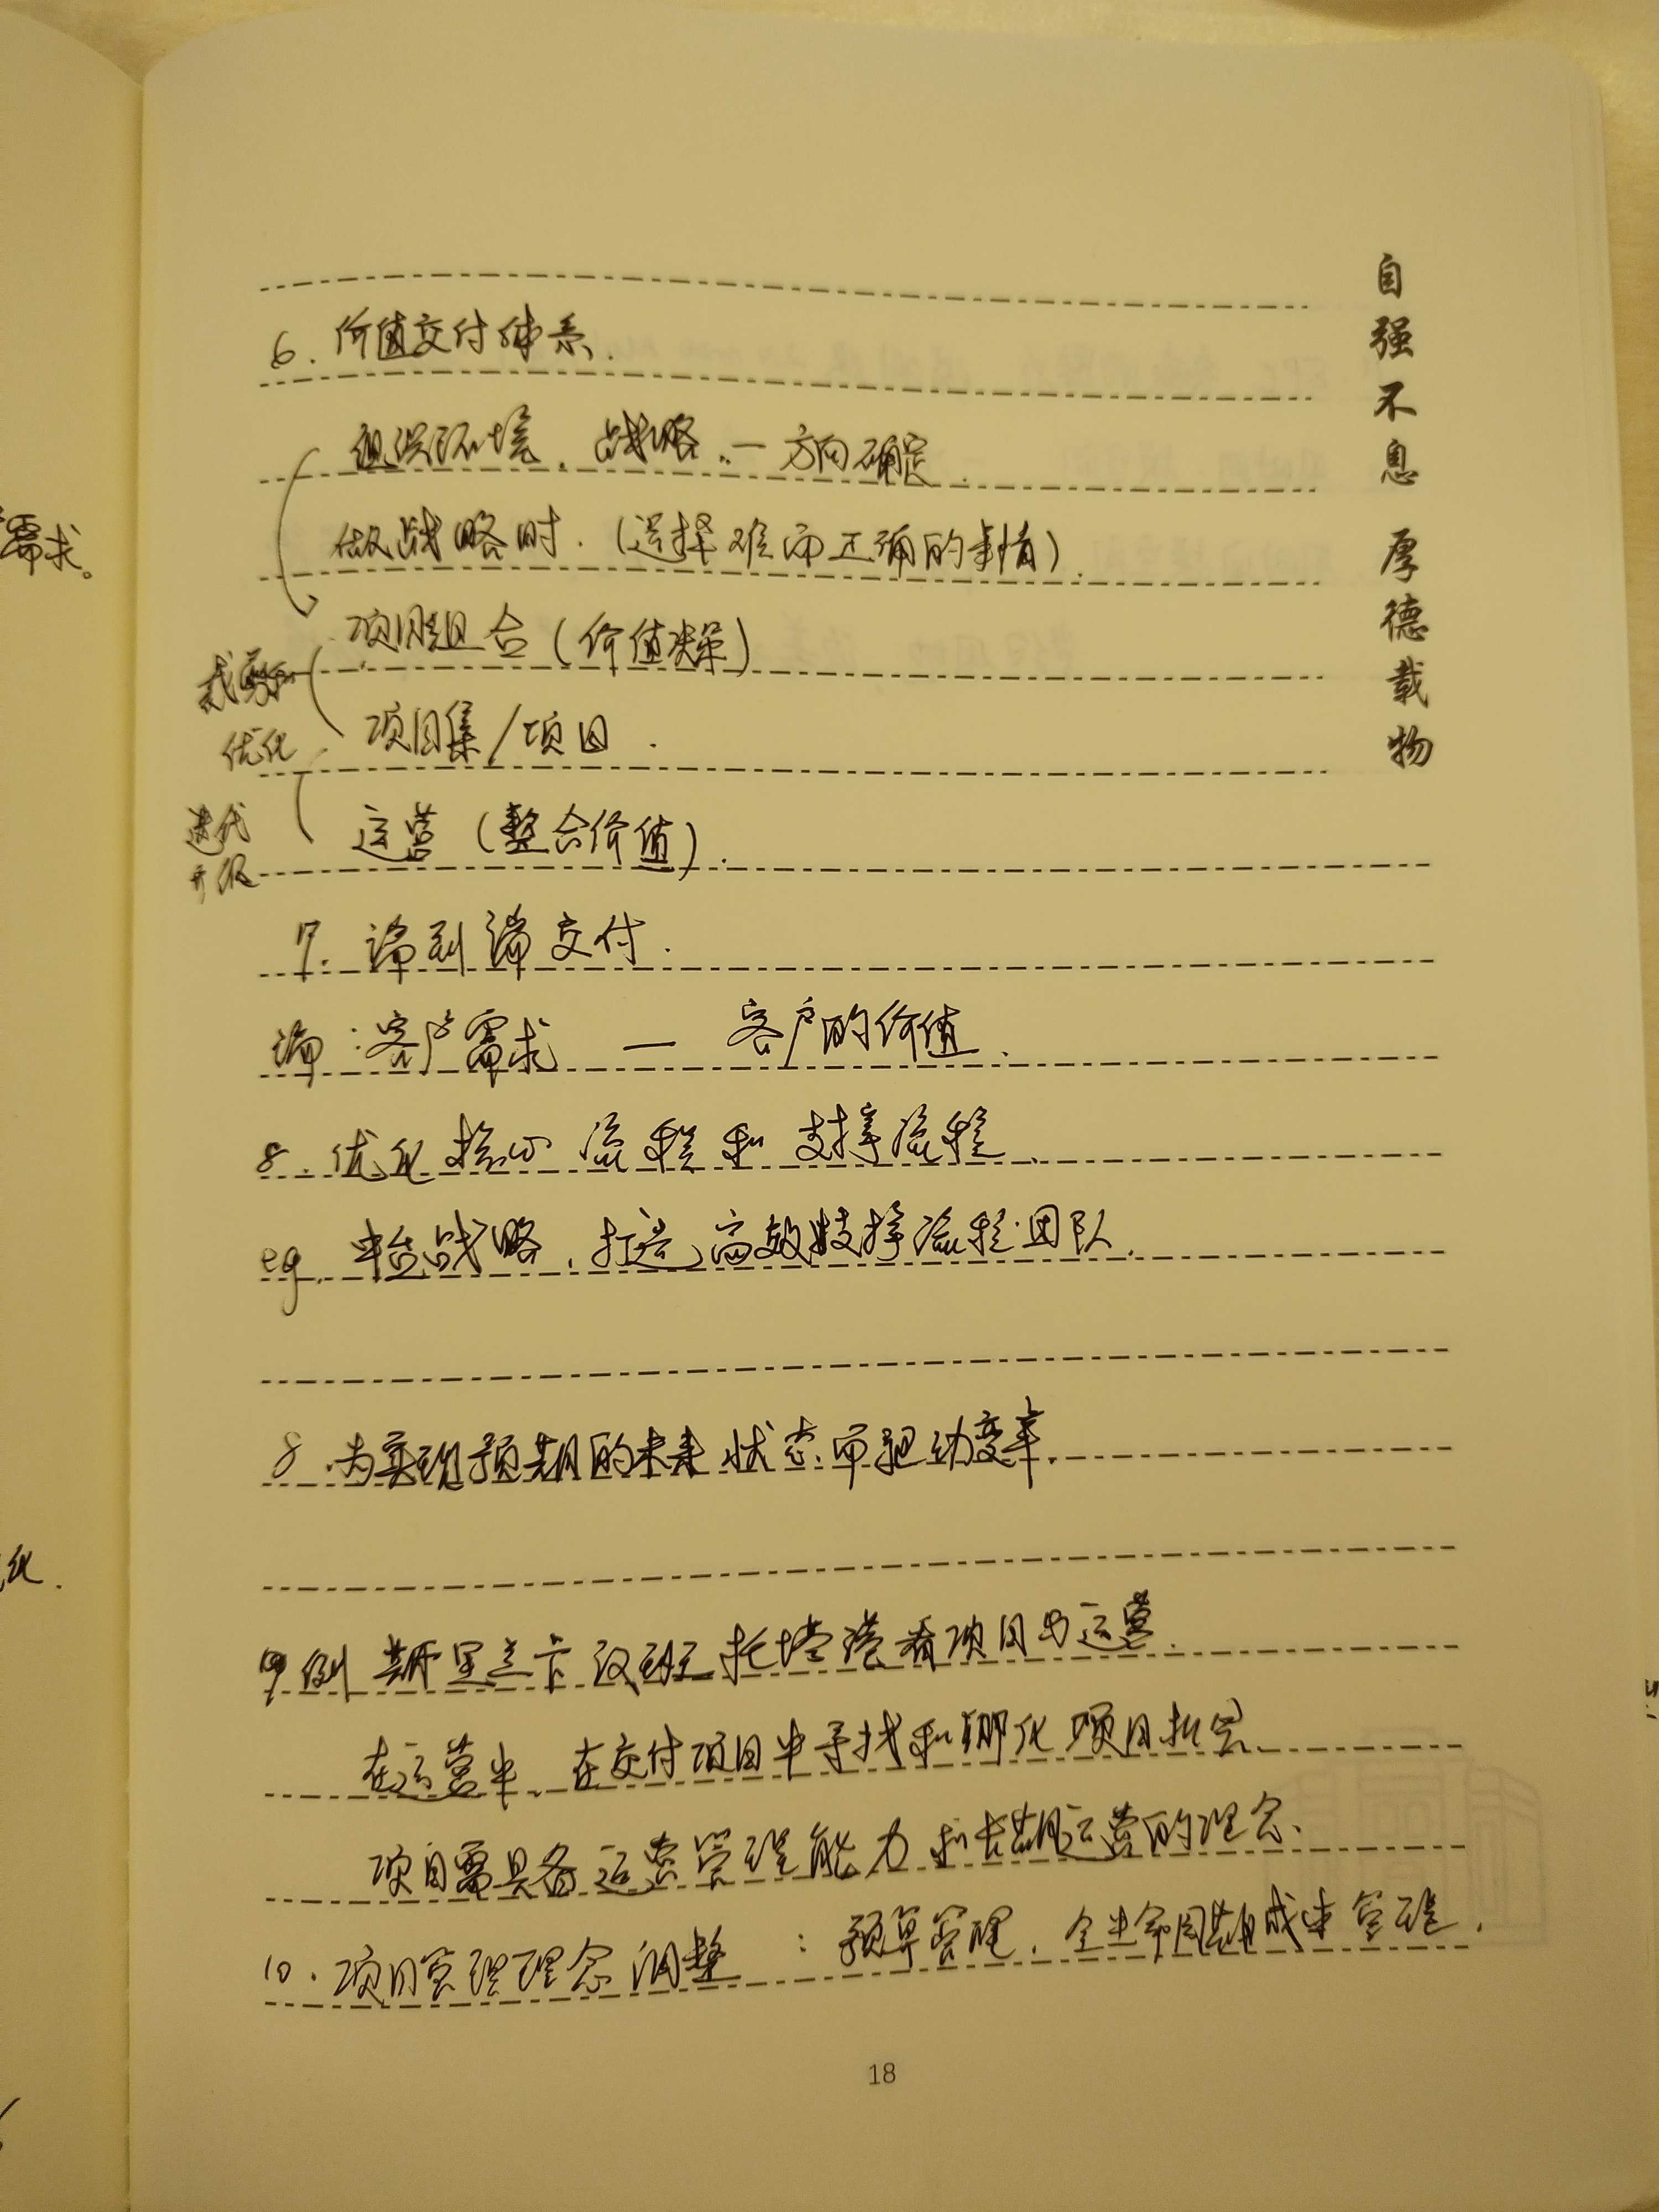 自强不息 厚德载物
需求。
化.
6. 价值交付体系.
组织环境、战略 — 方向确定.
做战略时.(选择难而正确的事情).
项目组合(价值决策)
裁剪和
优化
项目集/项目.
迭代
升级
运营(整合价值).
7. 端到端交付.
端:客户需求 — 客户的价值.
8. 优化核心流程和支撑流程.
eg. 中台战略,打造高效支撑流程团队.
8. 为实现预期的未来状态而驱动变革.
9. 例 斯里兰卡 汉班托塔港看项目与运营.
在运营中、在交付项目中寻找和孵化项目机会.
项目需具备运营管理能力和长期运营的理念.
10. 项目管理理念调整 :预算管理、全生命周期成本管理.
18